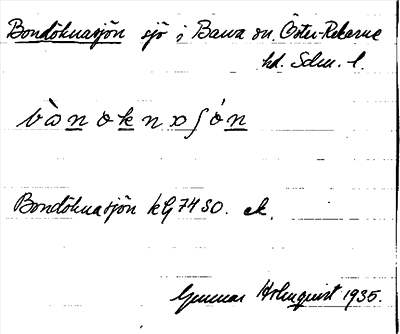 Bondöknasjön sjö i Barva sn. Öster-Rekarne
hd. Sdm. l.
bànoknaʃón
Bondöknasjön kG 74 SO. ek.
Gunnar Holmquist 1935.